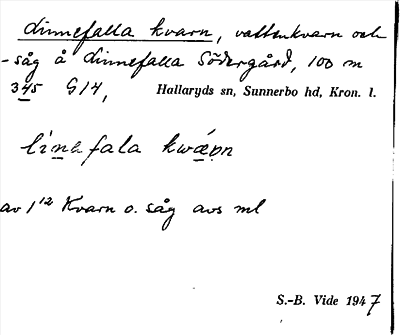 Linnefalla kvarn, vattenkvarn och
-såg å Linnefalla Södergård, 100 m
345 G14, Hallaryds sn, Sunnerbo hd, Kron. l.
línefala kwǽɒn
av 1¹² Kvarn o. såg avs ml
S.-B. Vide 1947